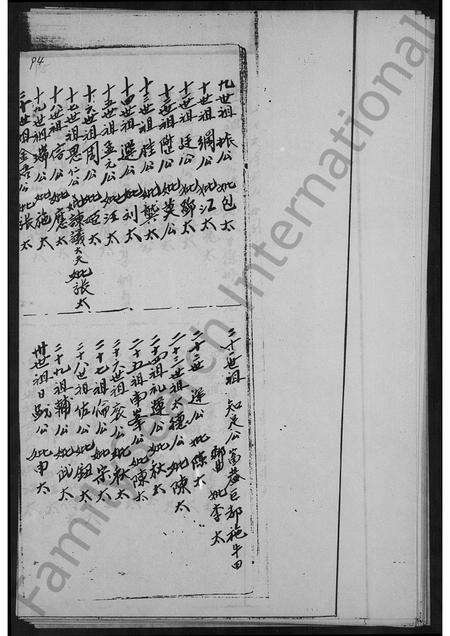 P4
九世祖振公妣包太
十世祖綱公妣江太
十一世祖廷公妣鄒太
十二世祖陞公妣英公
十三世祖桂公妣龔太
十四世祖選公妣刘太
十五世祖孟元公妣汪太
十六世祖周公妣姬太
十七世祖思仁公諫議大夫妣張太
十八祖信公妣應太
十九祖公妣施太
二十世祖公妣張太
二十一世祖知足公富甚巨郡施牛田
鄉里妣李太
二十二世公妣陳太
二十三世祖太德公妣陳太
二十四祖礼蓮公妣秋太
二十五祖南峯公妣陳太
二十六世祖辰公妣秋太
二十七祖倫公妣宋太
二十八世祖佐公妣鈕太
二十九祖輔公妣阮太
卅世祖日公妣申太
FamilySearch International